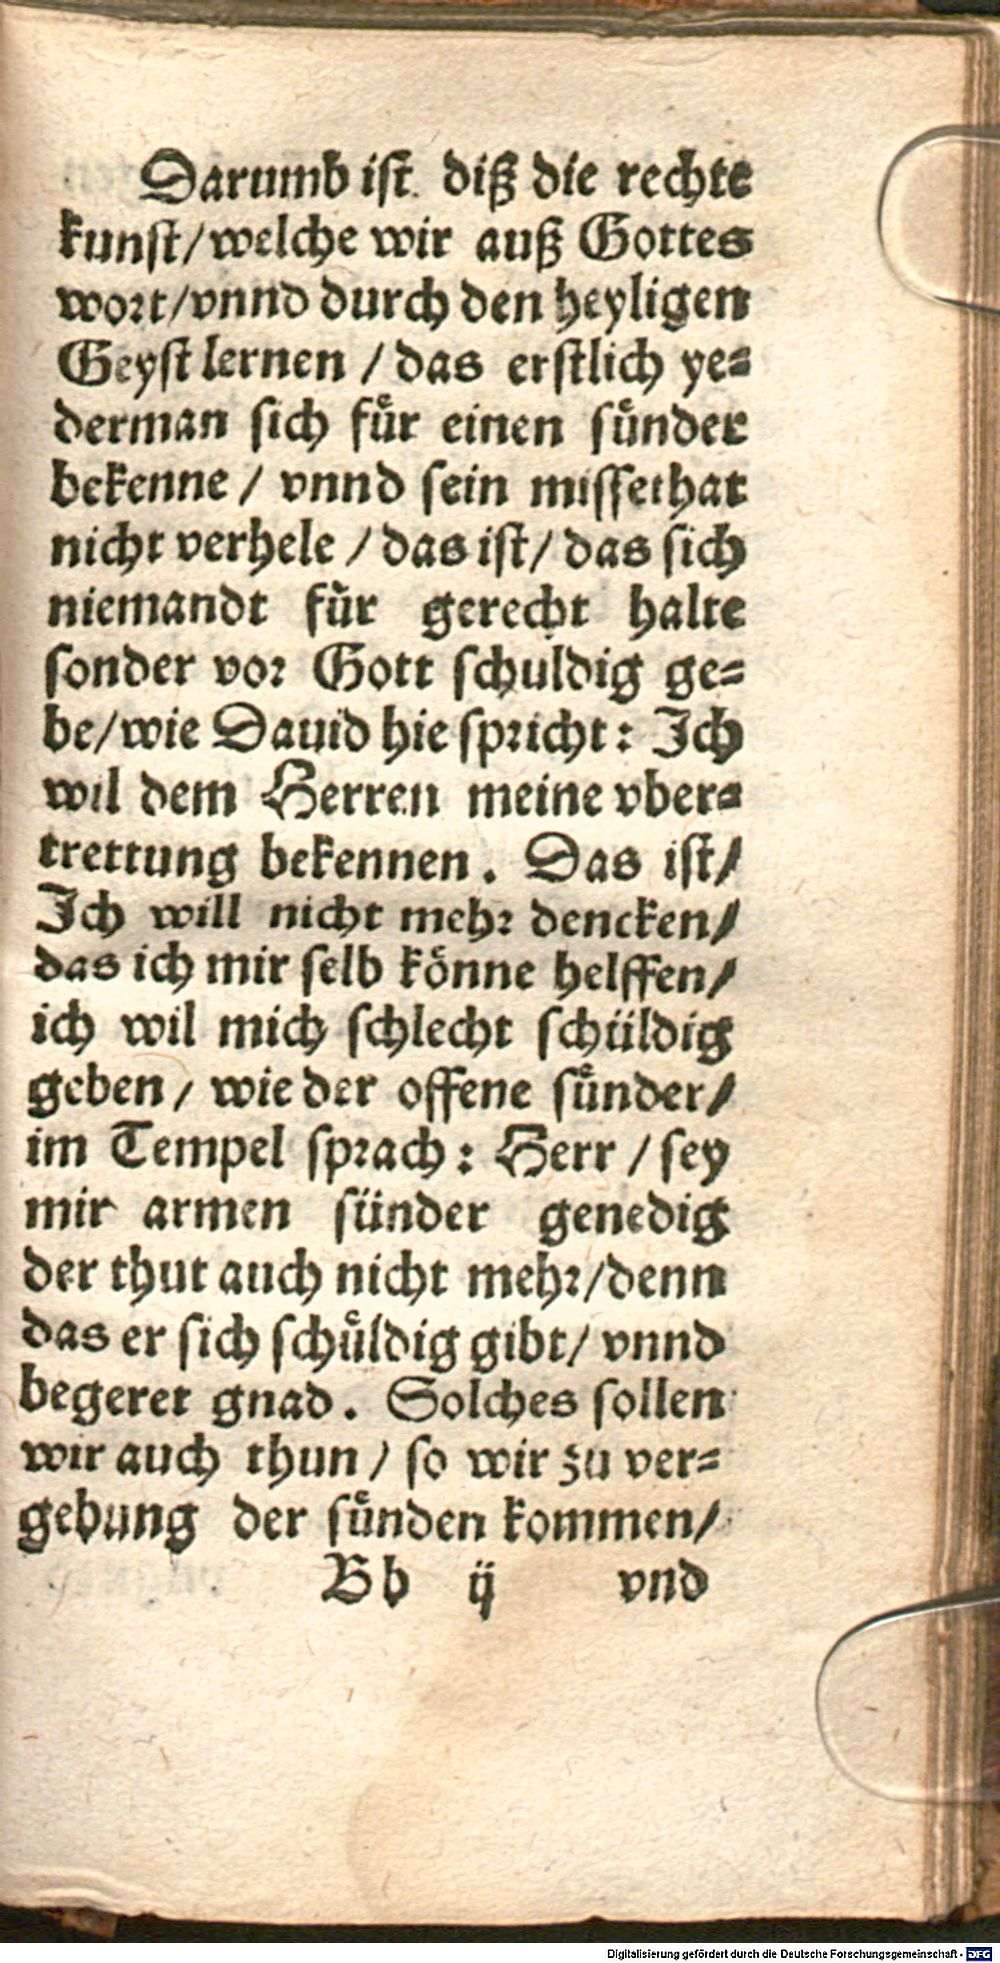 Darumb ist diß die rechte
kunst/welche wir auß Gottes
wort/vnnd durch den heyligen
Geyst lernen / das erstlich ye-
derman sich fuͤr einen suͤnder
bekenne / vnnd sein missethat
nicht verhele / das ist/ das sich
niemandt fuͤr gerecht halte
sonder vor Gott schuldig ge-
be/wie Dauid hie spricht: Ich
wil dem Herren meine vber-
trettung bekennen. Das ist/
Ich will nicht mehr dencken/
das ich mir selb koͤnne helffen/
ich wil mich schlecht schüldig
geben / wie der offene suͤnder/
im Tempel sprach: Herr / sey
mir armen sünder genedig
der thut auch nicht mehr/denn
das er sich schuͤldig gibt/ vnnd
begeret gnad. Solches sollen
wir auch thun / so wir zu ver-
gebung der suͤnden kommen/
Bb ij vnd
Digitalisierung gefördert durch die Deutsche Forschungsgemeinschaft - DFG